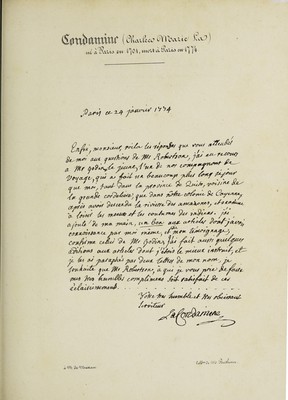 Condamine (Charles Marie La)
né à Paris en 1701, mort à Paris en 1774
Paris ce 24 janvier 1774
Enfin, monsieur, voila les réponses que vous attendés
de moi aux questions de Mr Robertson, j'ai eu recours
a Mr godin le jeune, l'un de nos compagnons de
voyage, qui a fait un beaucoup plus long séjour
que moi, tant dans la province de Quito, voisine de
la grande cordeliere, que dans notre colonie de Cayenne,
après avoir descendu la riviere des amazones, et
a loisir les moeurs et les coutumes des indiens. j'ai
ajouté de ma main, aux articles dont j'avois
connoissance par moi même, mon témoignage,
conforme à celui de Mr Godin, j'ai fait aussi quelques
additions aux articles dont j'étois le mieux instruit, et
je les ai paraphés par deux lettres de mon nom, je
souhaite que Mr Robertson, à qui je vous prie de faire
mes très humbles complimens soit satisfait de ces
éclaircissemens.
Votre très humble et très obéissant
serviteur
La Condamine